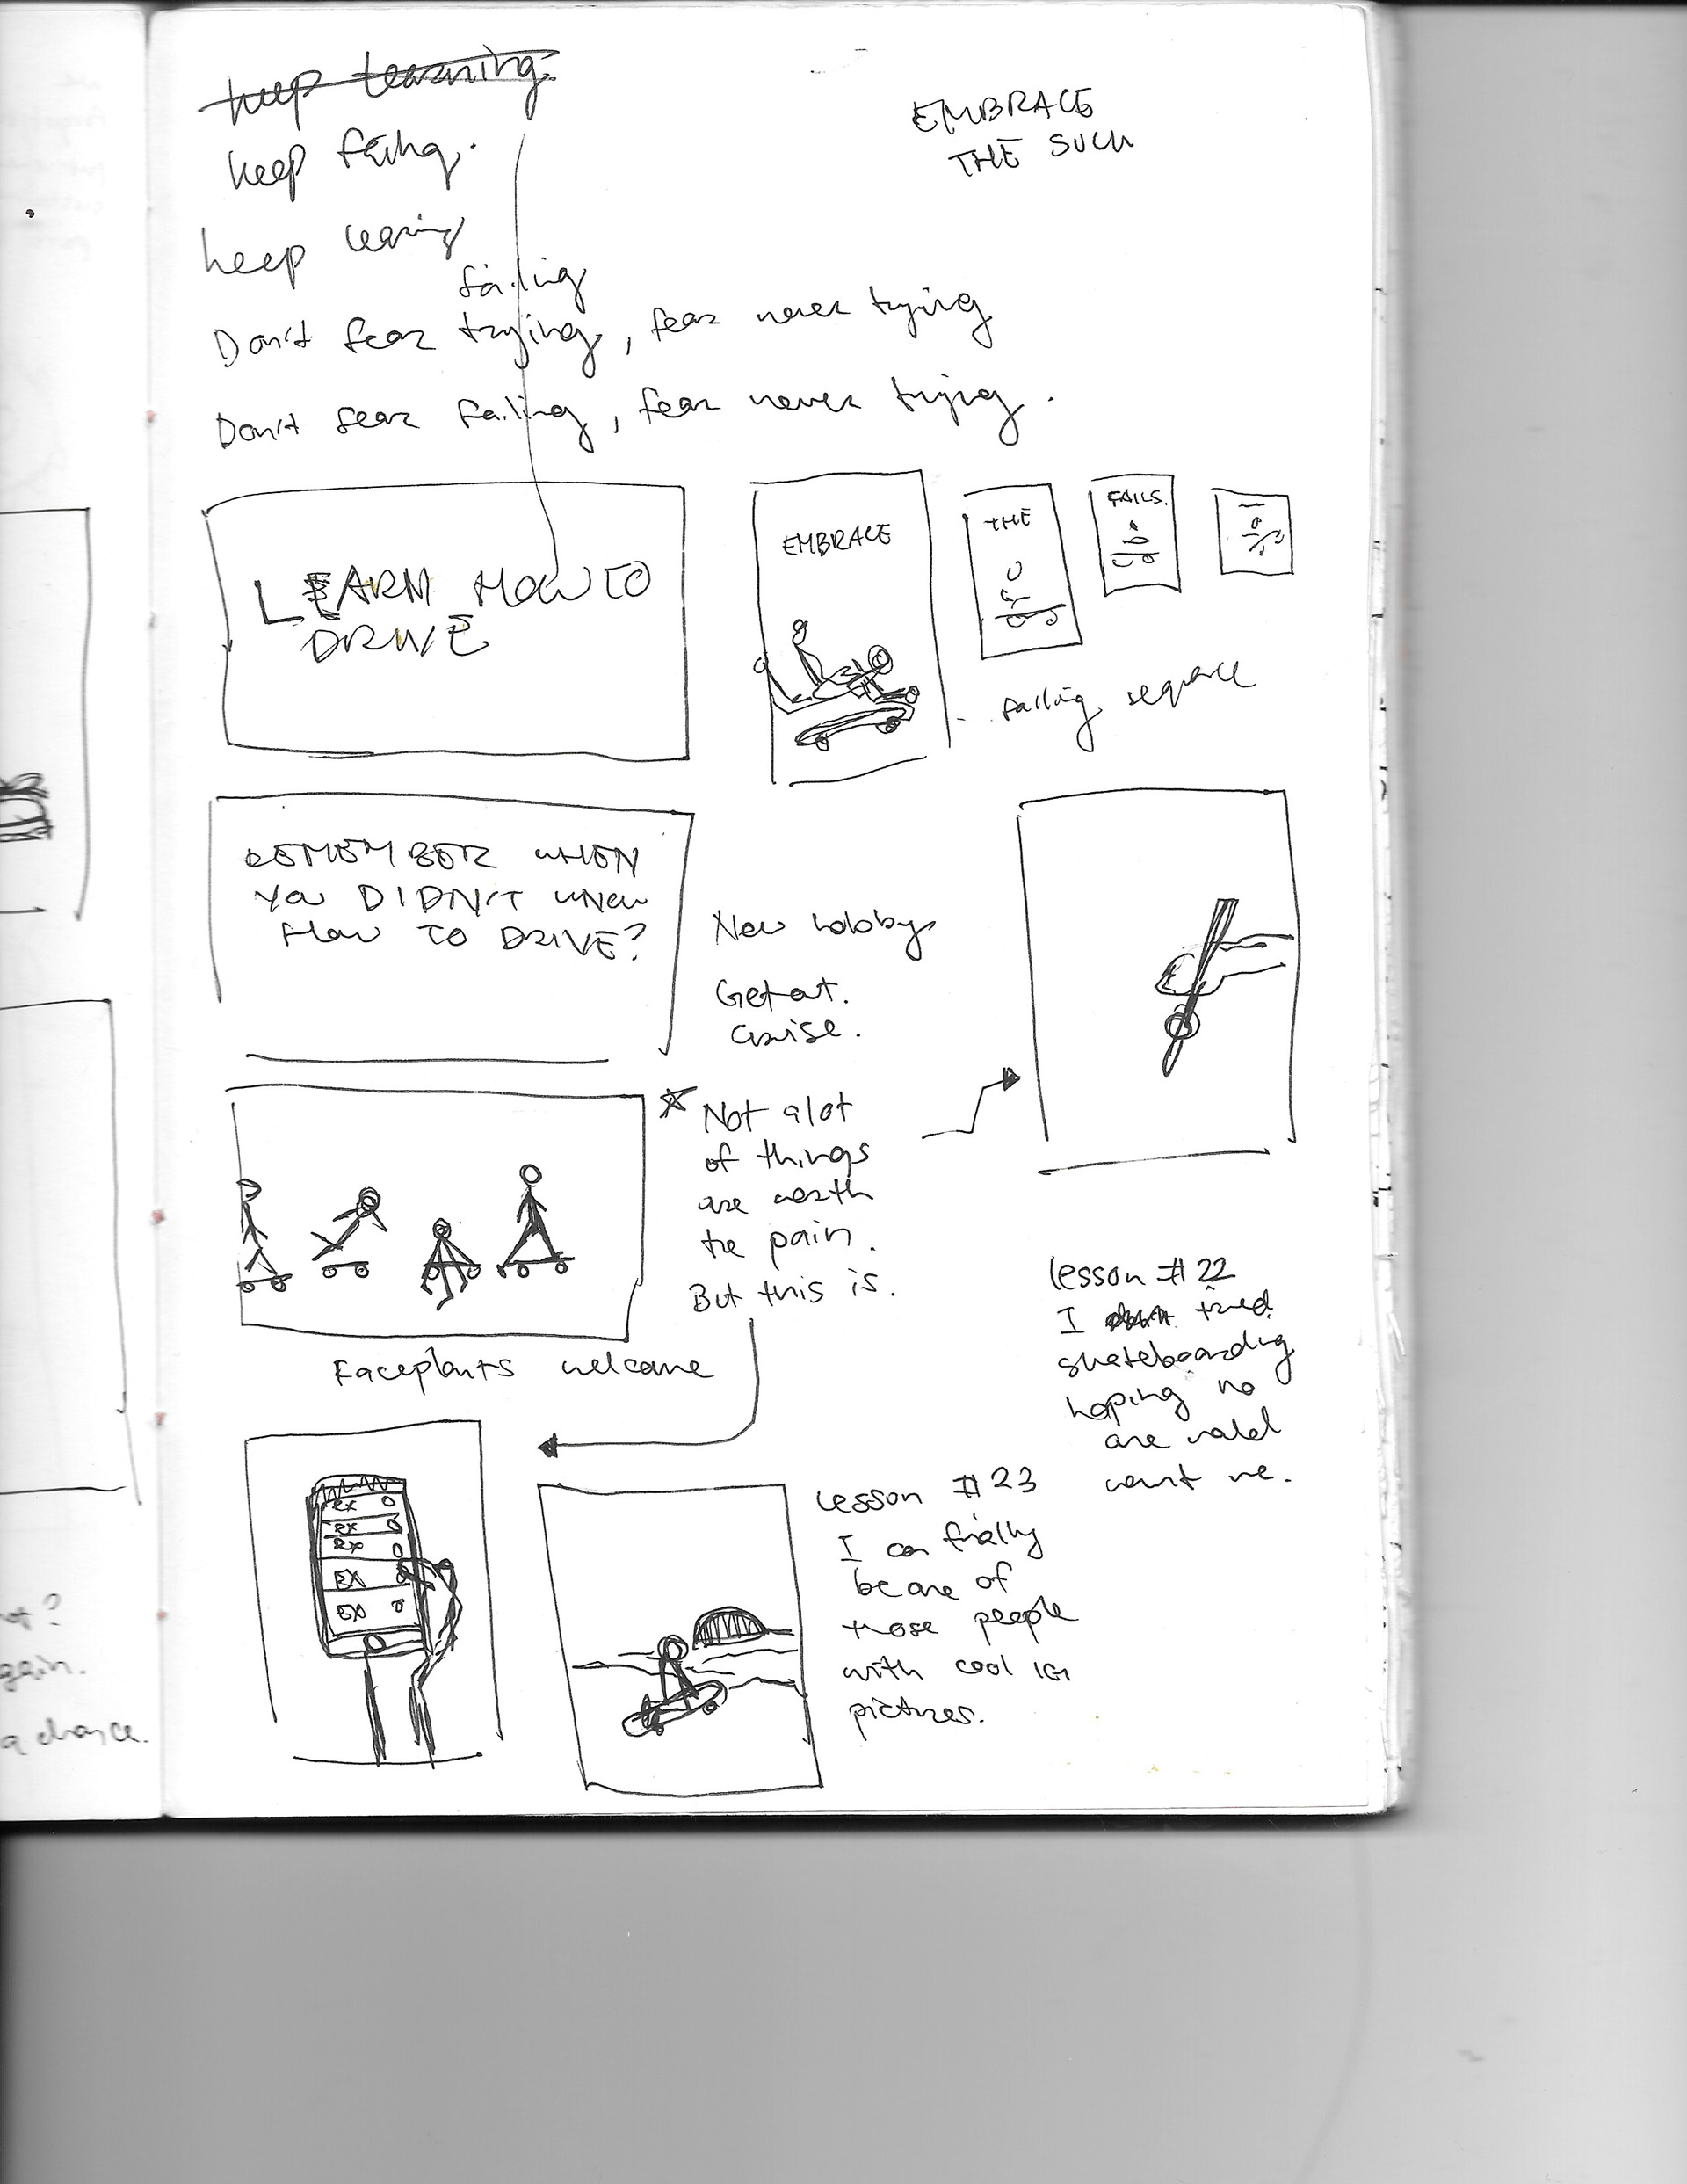 keep learning.
keep failing.
EMBRACE
THE SUCK
keep learning
failing
Don't fear trying, fear never trying
Don't fear failing, fear never trying.
LEARN HOW TO
DRIVE
EMBRACE
THE
FAILS.
falling sequence
REMEMBER WHEN
YOU DIDN'T KNOW
HOW TO DRIVE?
New hobby
Get out.
Cruise.
* Not a lot
of things
are worth
the pain.
But this is.
Faceplants welcome
Lesson #22
I tried
skateboarding
hoping no
one would
want me.
EX
EX
EX
EX
EX
Lesson #23
I can finally
be one of
those people
with cool IG
pictures.
gain.
a chance.